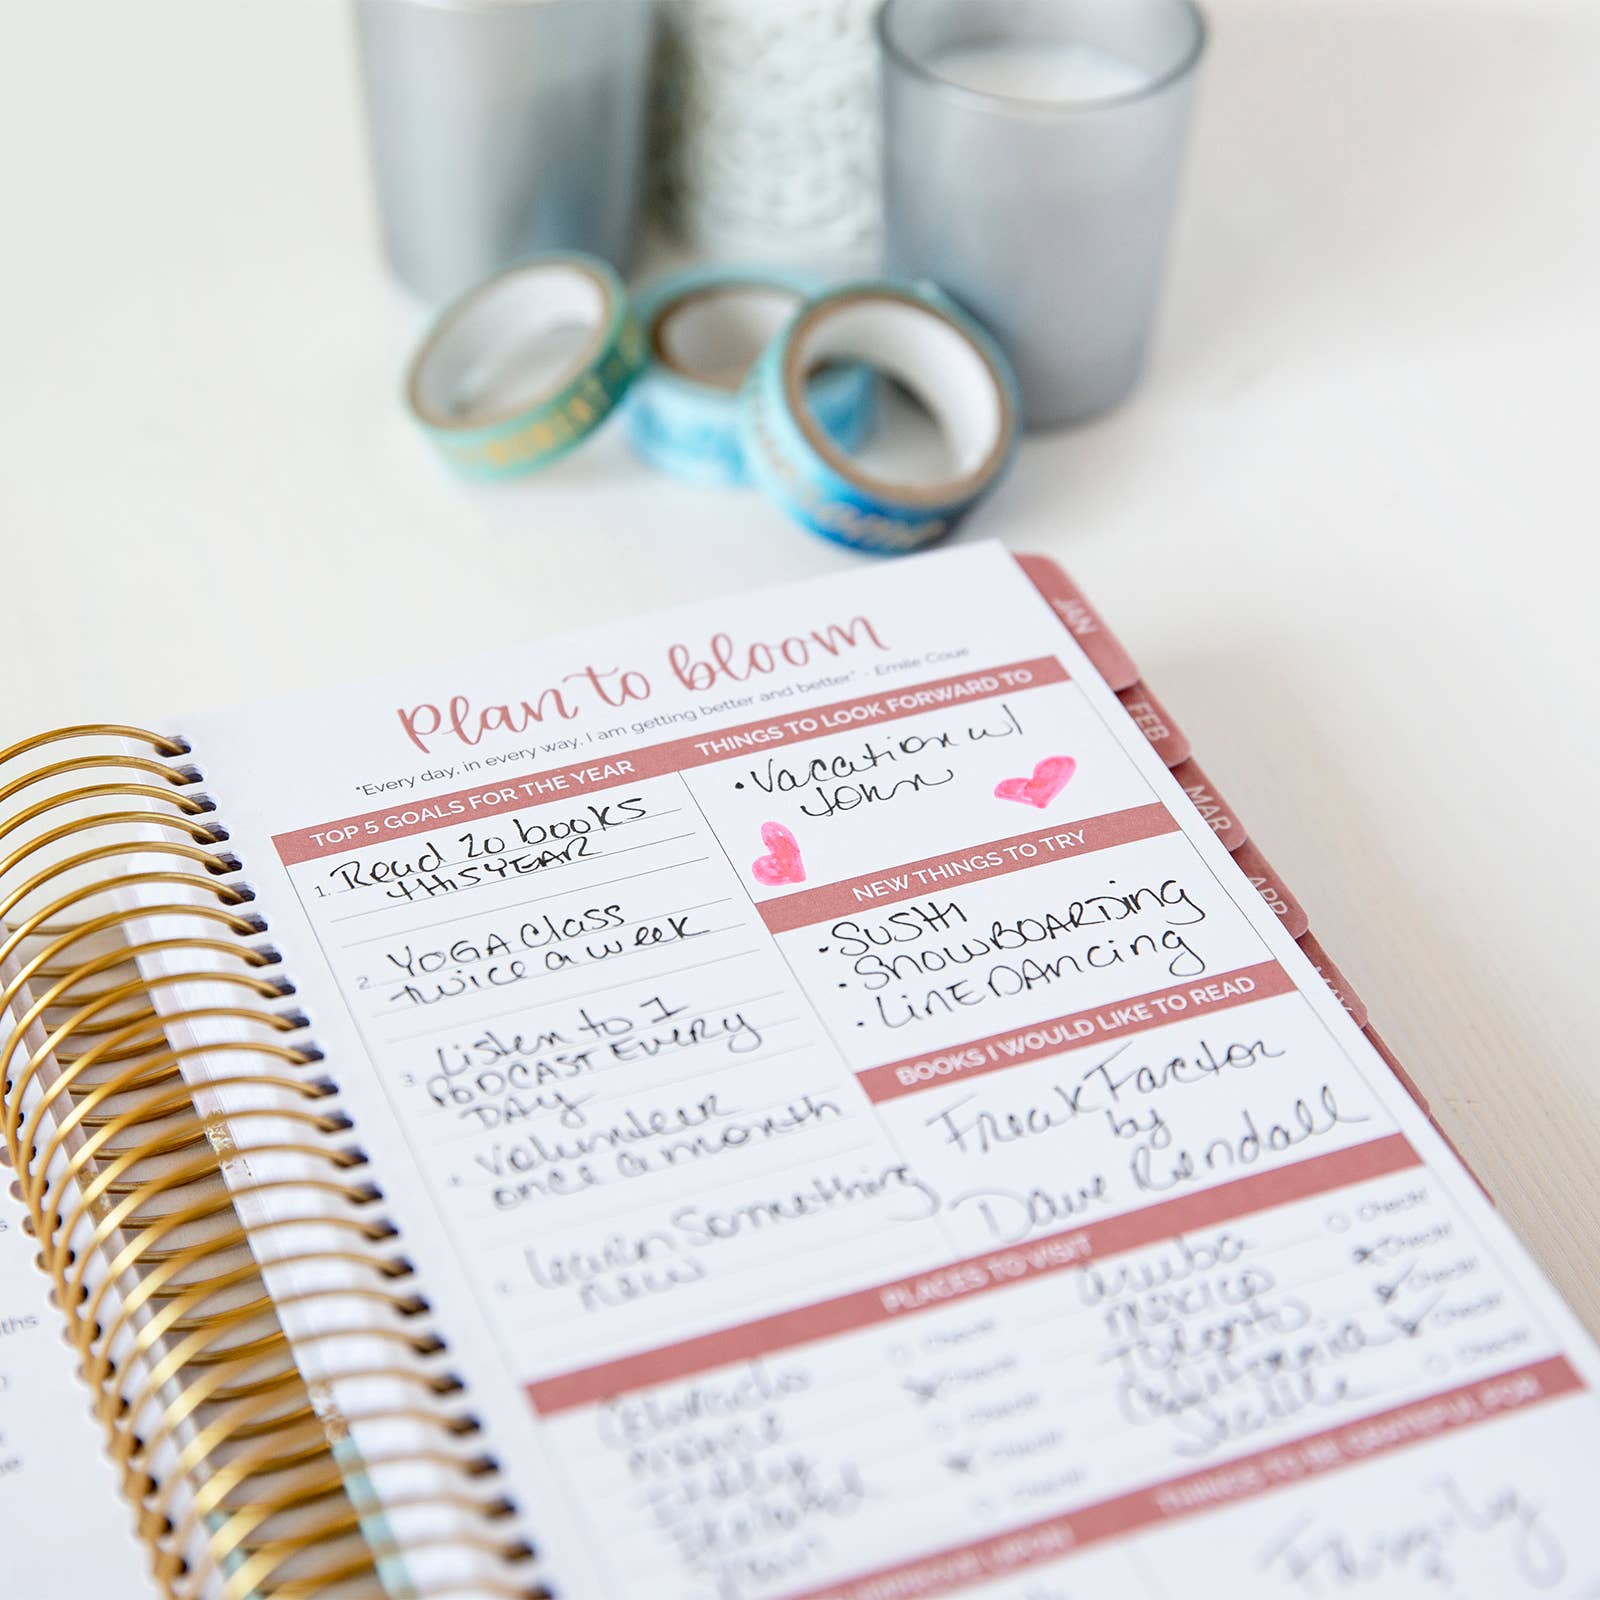 Plan to bloom
"Every day, in every way, I am getting better and better" - Emile Coue
TOP 5 GOALS FOR THE YEAR
1. Read 20 books
this YEAR
2. YOGA Class
twice a week
3. Listen to 1
PODCAST EVERY
DAY
Volunteer
once a month
Learn Something
new
THINGS TO LOOK FORWARD TO
•Vacation w/
John
NEW THINGS TO TRY
•SUSHI
•SNOWBOARDING
•LINE DANCING
BOOKS I WOULD LIKE TO READ
Freak Factor
by
Dave Rendall
PLACES TO VISIT
Colorado
Check!
Check!
Italy
Check!
Check!
Spain
Check!
Aruba
Check!
Mexico
Check!
Toronto
Check!
California
Check!
Seattle
Check!
THINGS TO BE GRATEFUL FOR
Family
JAN
FEB
MAR
APR
MAY